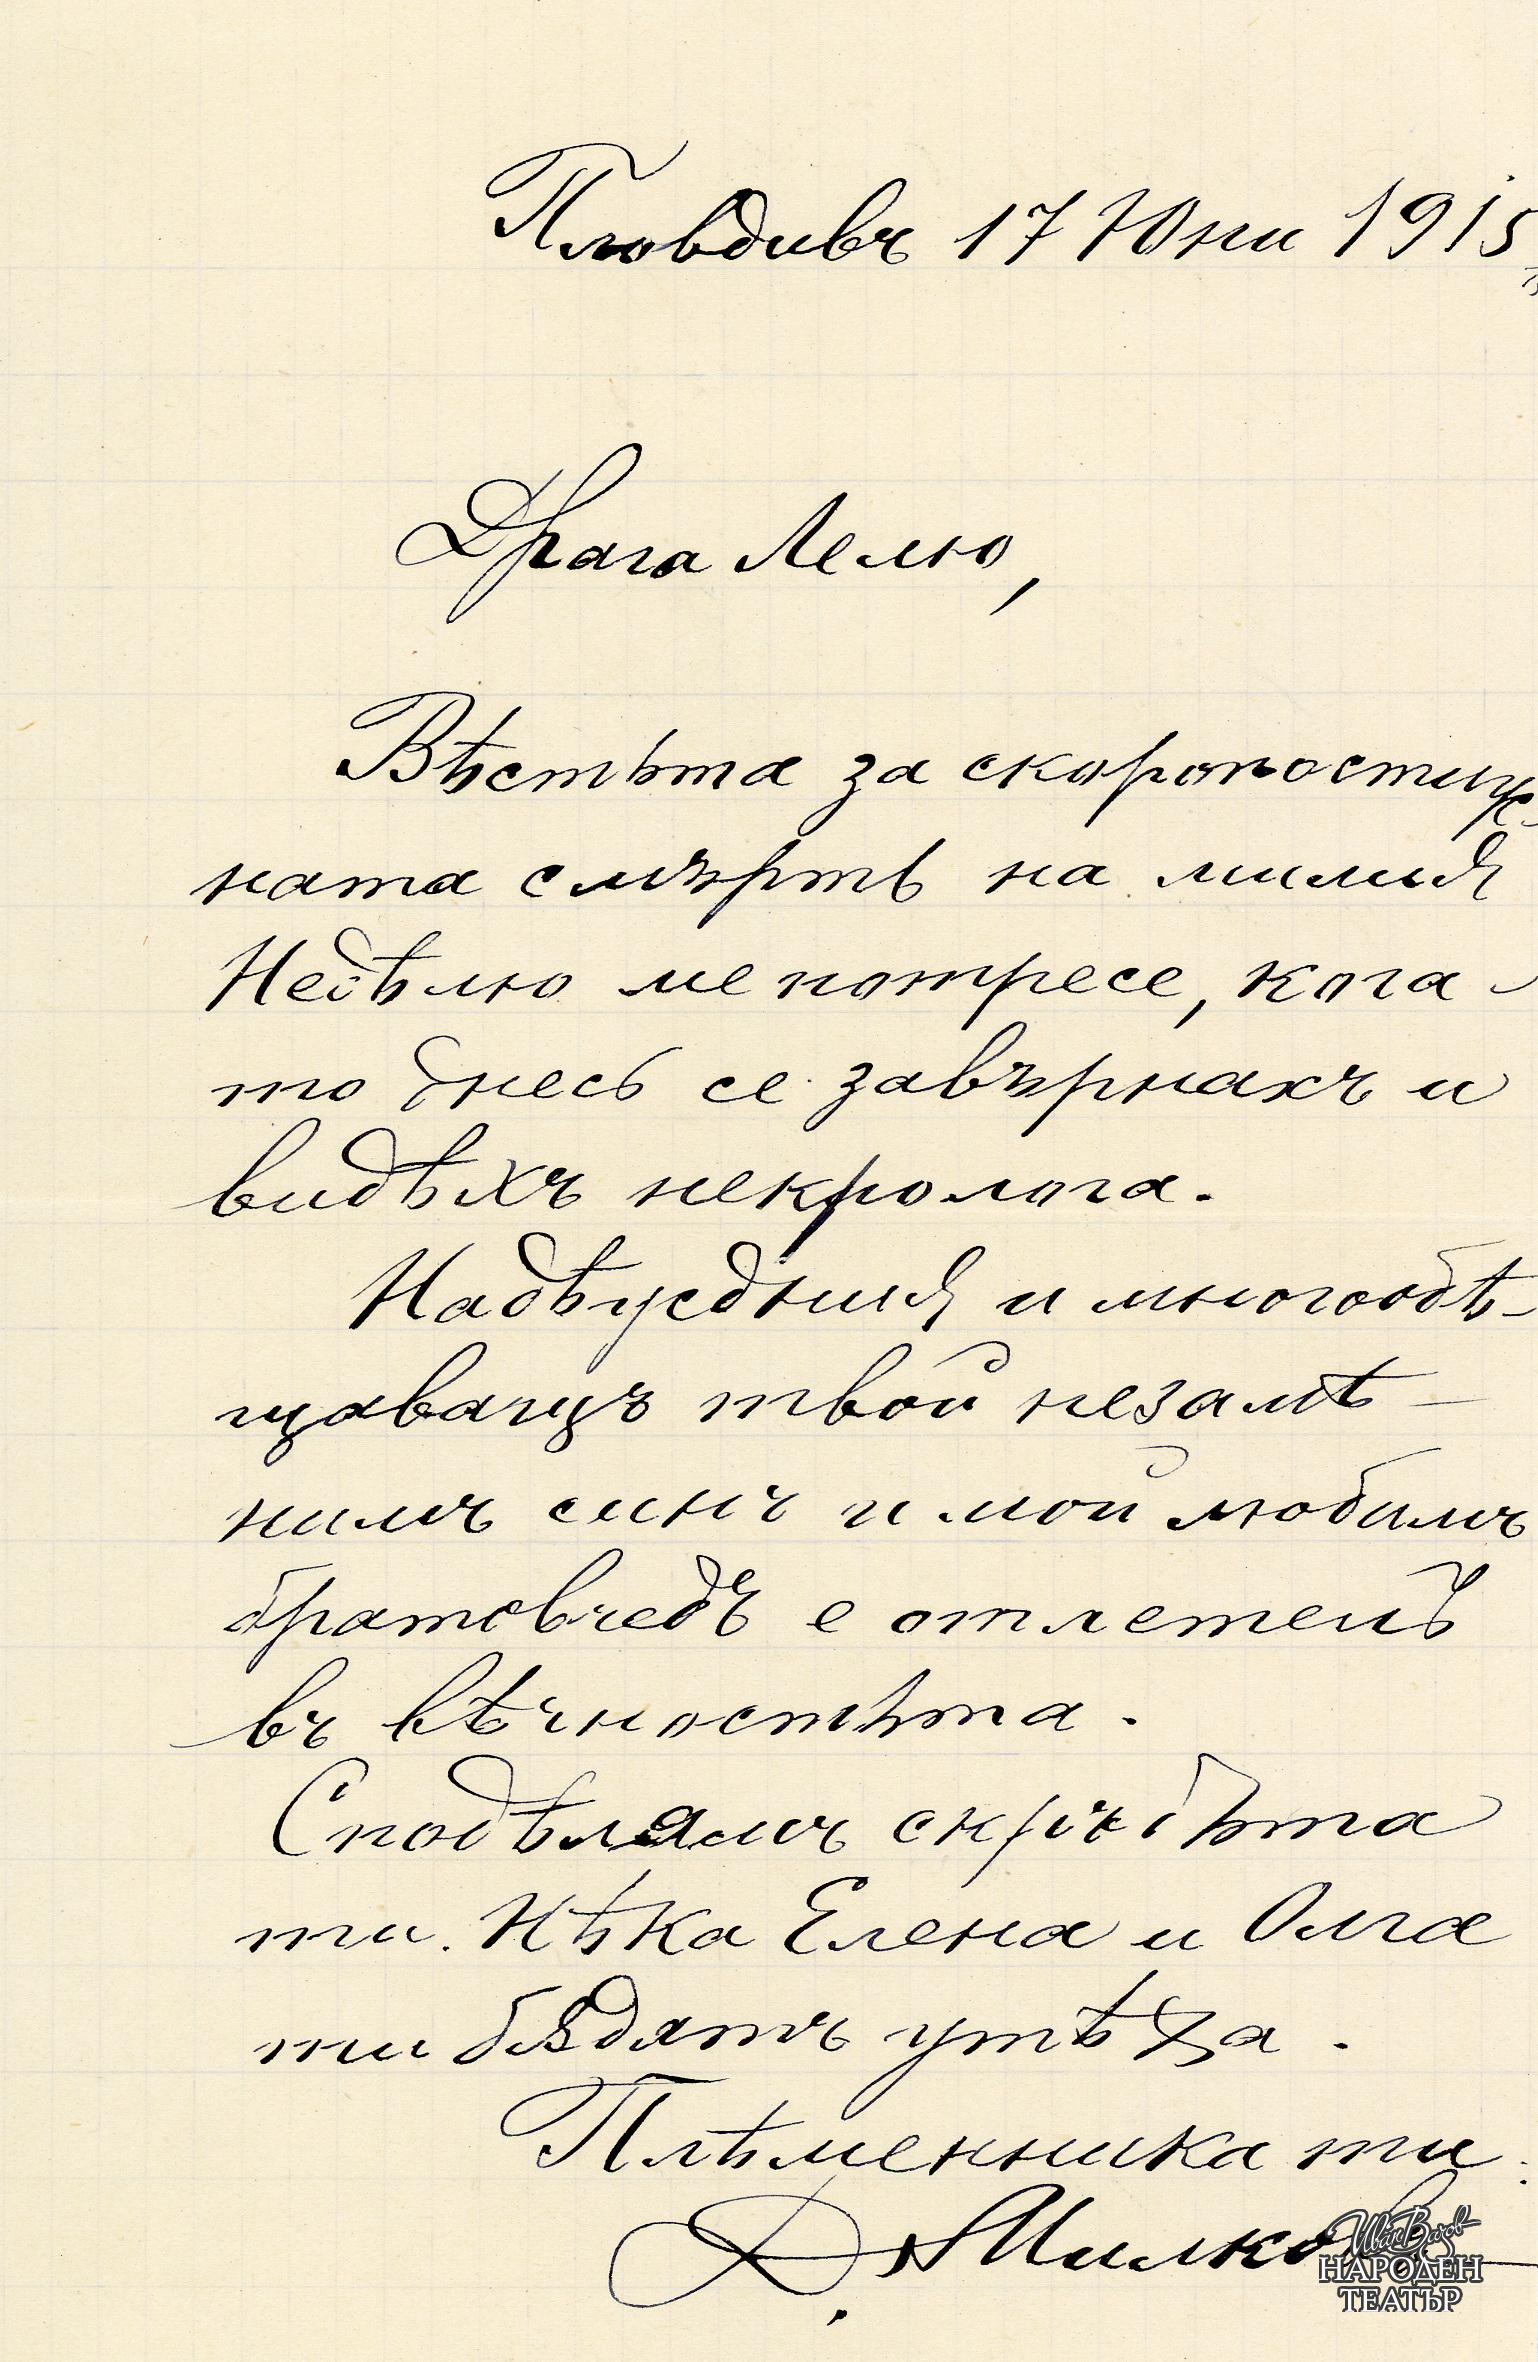 Пловдивъ 17 Юни 1915
Драга Лелю,
Вѣстьта за скоропостиж-
ната смърть на милия
Недѣлю ме потресе, кога-
то днесь се завърнахъ и
видѣхъ некролога.
Надѣждния и многообѣ-
щаващъ твой незамѣ-
нимъ синъ и мой любимъ
братовчедъ е отлетелъ
въ вѣчностьта.
Сподѣлямъ скръбьта
ти. Нѣка Елена и Олга
ти бѫдятъ утѣха.
Плѣменника ти:
Д. Милковъ
Иван Вазов
НАРОДЕН
ТЕАТЪР